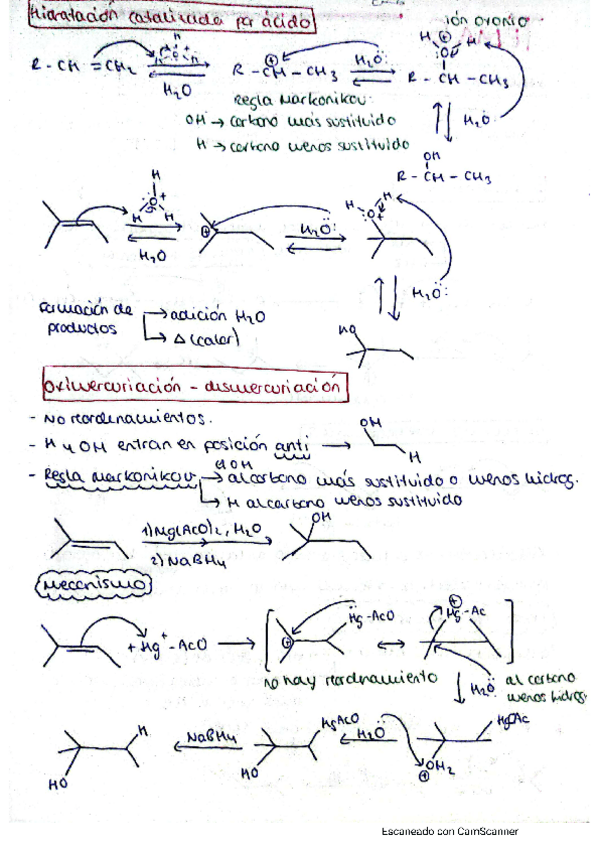 Hidratación catalizada por ácido
ión oxonio
R-CH=CH2 H H H + H2O R-CH-CH3 H2O: R-CH-CH3
Regla Markonikov:
OH → carbono más sustituido
H → carbono menos sustituido
H2O:
OH
R-CH-CH3
H
H H
H2O
H2O:
H H
H2O:
Formación de productos → adición H2O
→ Δ (calor)
HO
Oximercuriación - desmercuriación
- No reordenamientos.
- H y OH entran en posición anti → OH H
- Regla Markonikov → el OH al carbono más sustituido o menos hidrog.
→ H al carbono menos sustituido
1) Mg(AcO)2, H2O
2) NaBH4
OH
Mecanismo
+ Hg+-AcO → Hg-AcO ↔ Hg-Ac
no hay reordenamiento
H2O: al carbono
menos hidrog.
H
HO
NaBH4
HgAcO
HO
H2O:
HgOAc
OH2
Escaneado con CamScanner